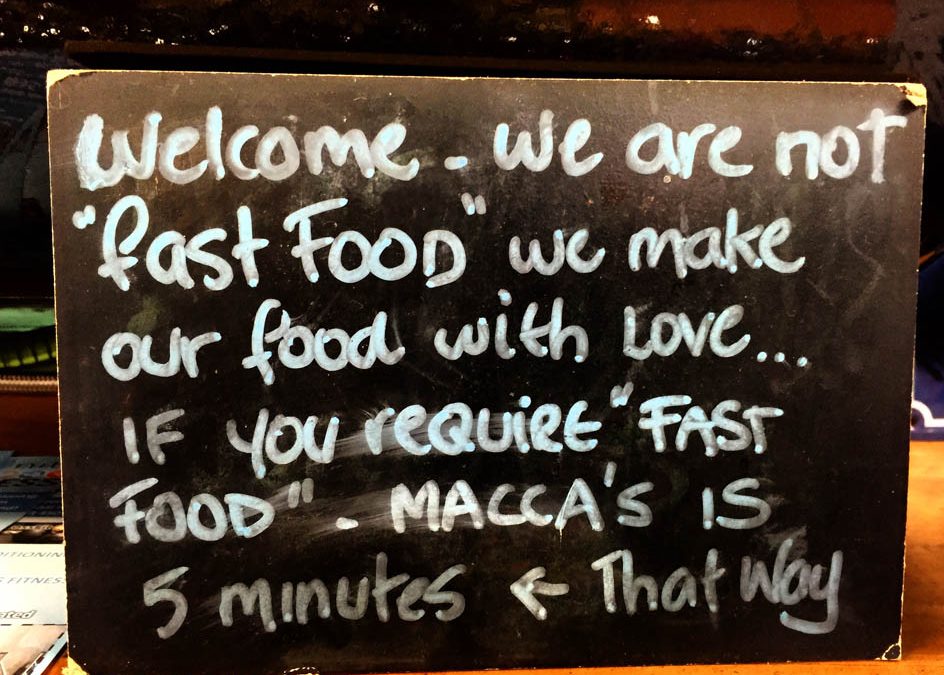 Welcome - we are not
"fast FOOD" we make
our food with Love...
IF you reQUIRE "FAST
FOOD" - MACCA'S IS
5 minutes ← That Way
DITIONIN
FITNESS